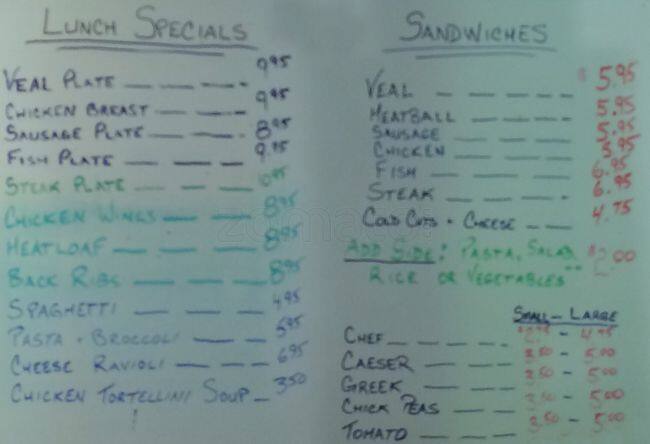 LUNCH SPECIALS
VEAL PLATE 9.95
CHICKEN BREAST 9.95
SAUSAGE PLATE 8.95
FISH PLATE 9.95
STEAK PLATE 10.95
CHICKEN WINGS 8.95
MEATLOAF 8.95
BACK RIBS 8.95
SPAGHETTI 4.95
PASTA + BROCCOLI 5.95
CHEESE RAVIOLI 6.95
CHICKEN TORTELLINI SOUP 3.50
SANDWICHES
VEAL $5.95
MEATBALL 5.95
SAUSAGE 5.95
CHICKEN 5.95
FISH 6.95
STEAK 6.95
COLD CUTS + CHEESE 4.75
ADD SIDE: PASTA, SALAD $2.00
RICE OR VEGETABLES
SMALL - LARGE
CHEF - 4.95
CAESER 3.50 - 5.00
GREEK 3.50 - 5.00
CHICK PEAS 3.50 - 5.00
TOMATO 3.50 - 5.00